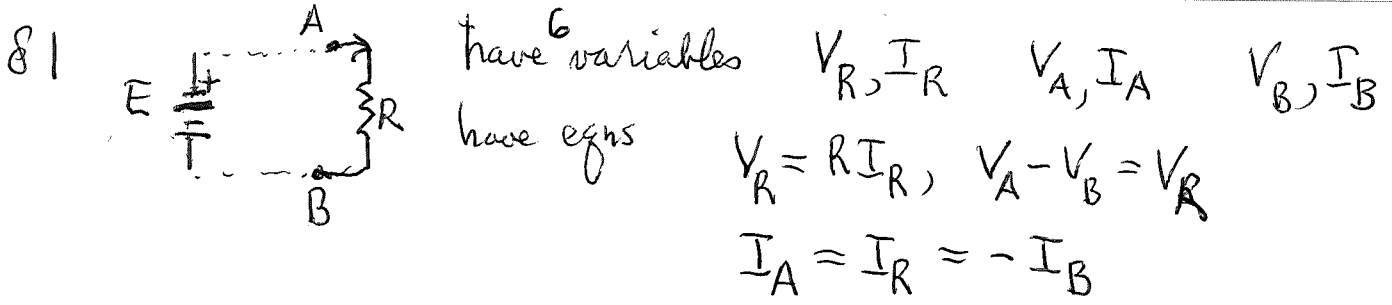 81
A
E
+
-
R
B
have 6 variables V_R, I_R V_A, I_A V_B, I_B
have eqns V_R = R I_R, V_A - V_B = V_R
I_A = I_R = - I_B